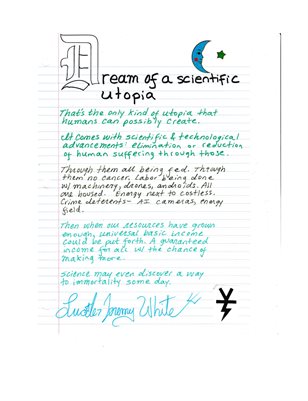 Dream of a scientific
utopia
That's the only kind of utopia that
humans can possibly create.
It comes with scientific & technological
advancements: elimination or reduction
of human suffering through those.
Through them all being fed. Through
them no cancer. Labor being done
w/ machinery, drones, androids. All
are housed. Energy next to costless.
Crime deterents- AI cameras, energy
field.
Then when our resources have grown
enough, universal basic income
could be put forth. A guaranteed
income for all w/ the chance of
making more.
Science may even discover a way
to immortality some day.
Jeremy White